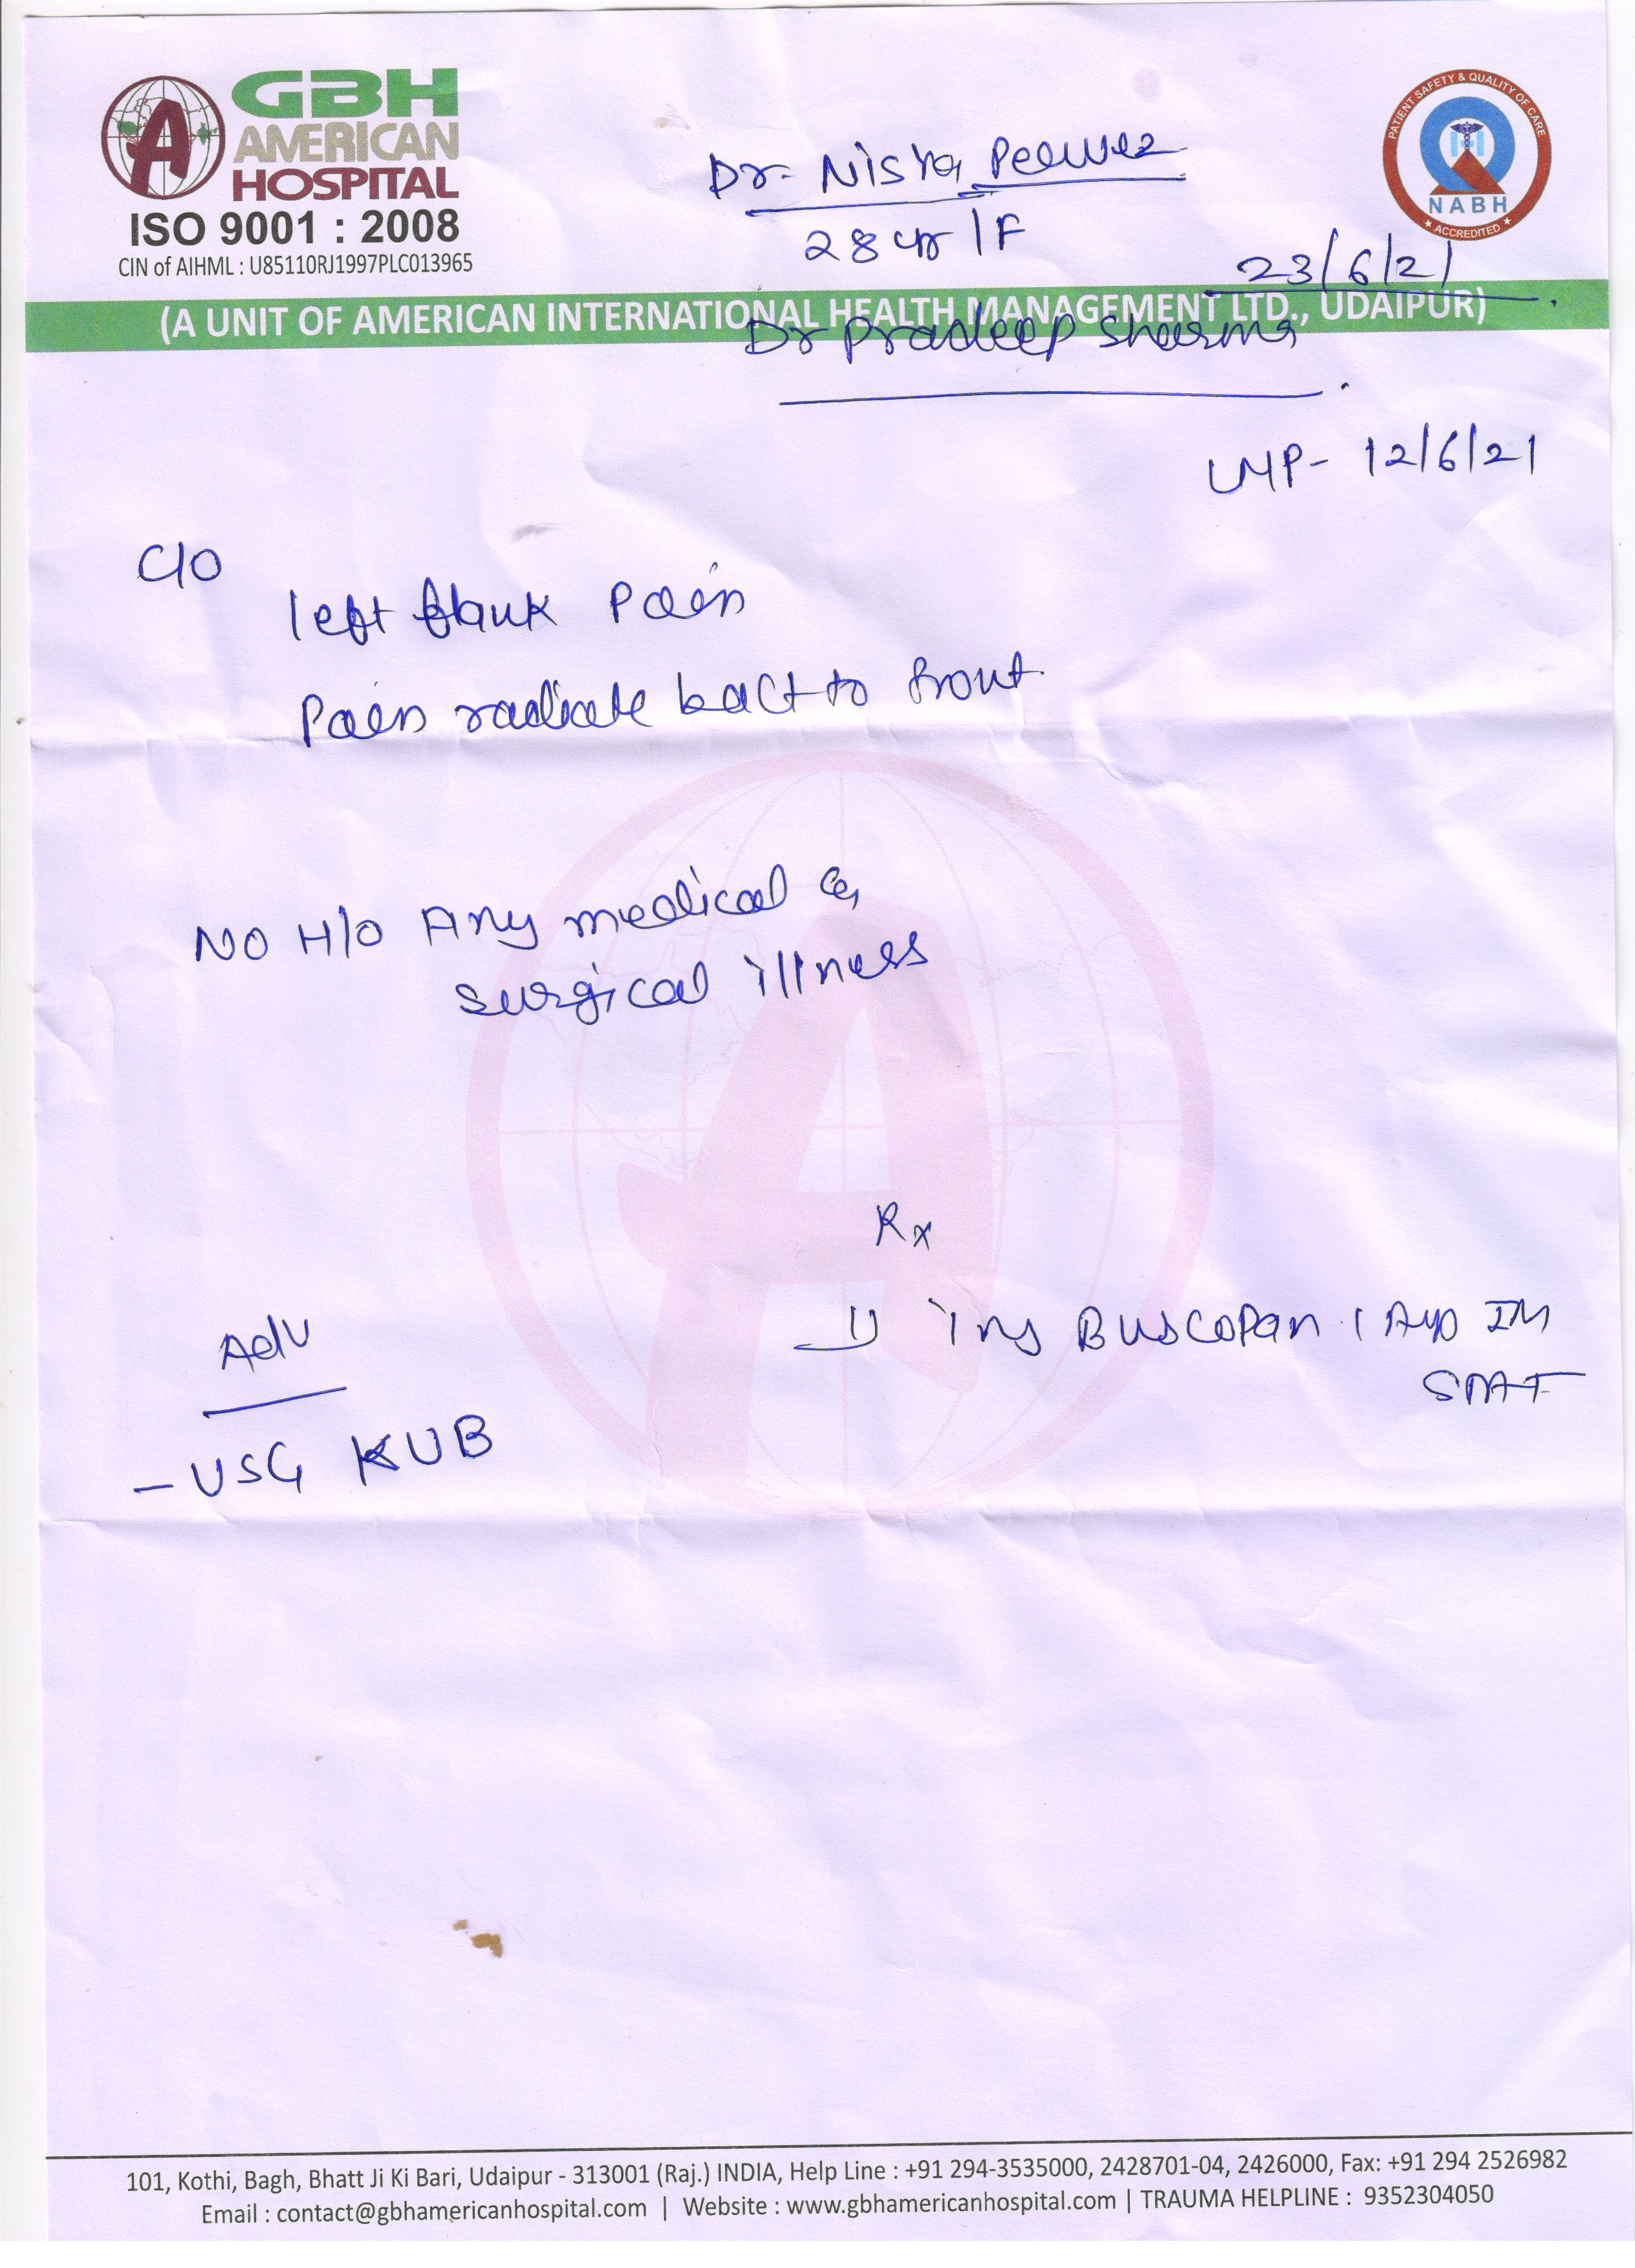 GBH
AMERICAN
HOSPITAL
ISO 9001 : 2008
CIN of AIHML : U85110RJ1997PLC013965
PATIENT SAFETY & QUALITY OF CARE
NABH
ACCREDITED
Dr. Nisha
28 yr / F
23/6/21
(A UNIT OF AMERICAN INTERNATIONAL HEALTH MANAGEMENT LTD., UDAIPUR)
Dr Pradeep Sharma
LMP- 12/6/21
C/O
left flank Pain
Pain radiate back to front
NO H/O Any medical &
surgical illness
Rx
1) inj Buscopan 1 Amp IM
STAT
Adv
- USG KUB
101, Kothi, Bagh, Bhatt Ji Ki Bari, Udaipur - 313001 (Raj.) INDIA, Help Line : +91 294-3535000, 2428701-04, 2426000, Fax: +91 294 2526982
Email : contact@gbhamericanhospital.com | Website : www.gbhamericanhospital.com | TRAUMA HELPLINE : 9352304050